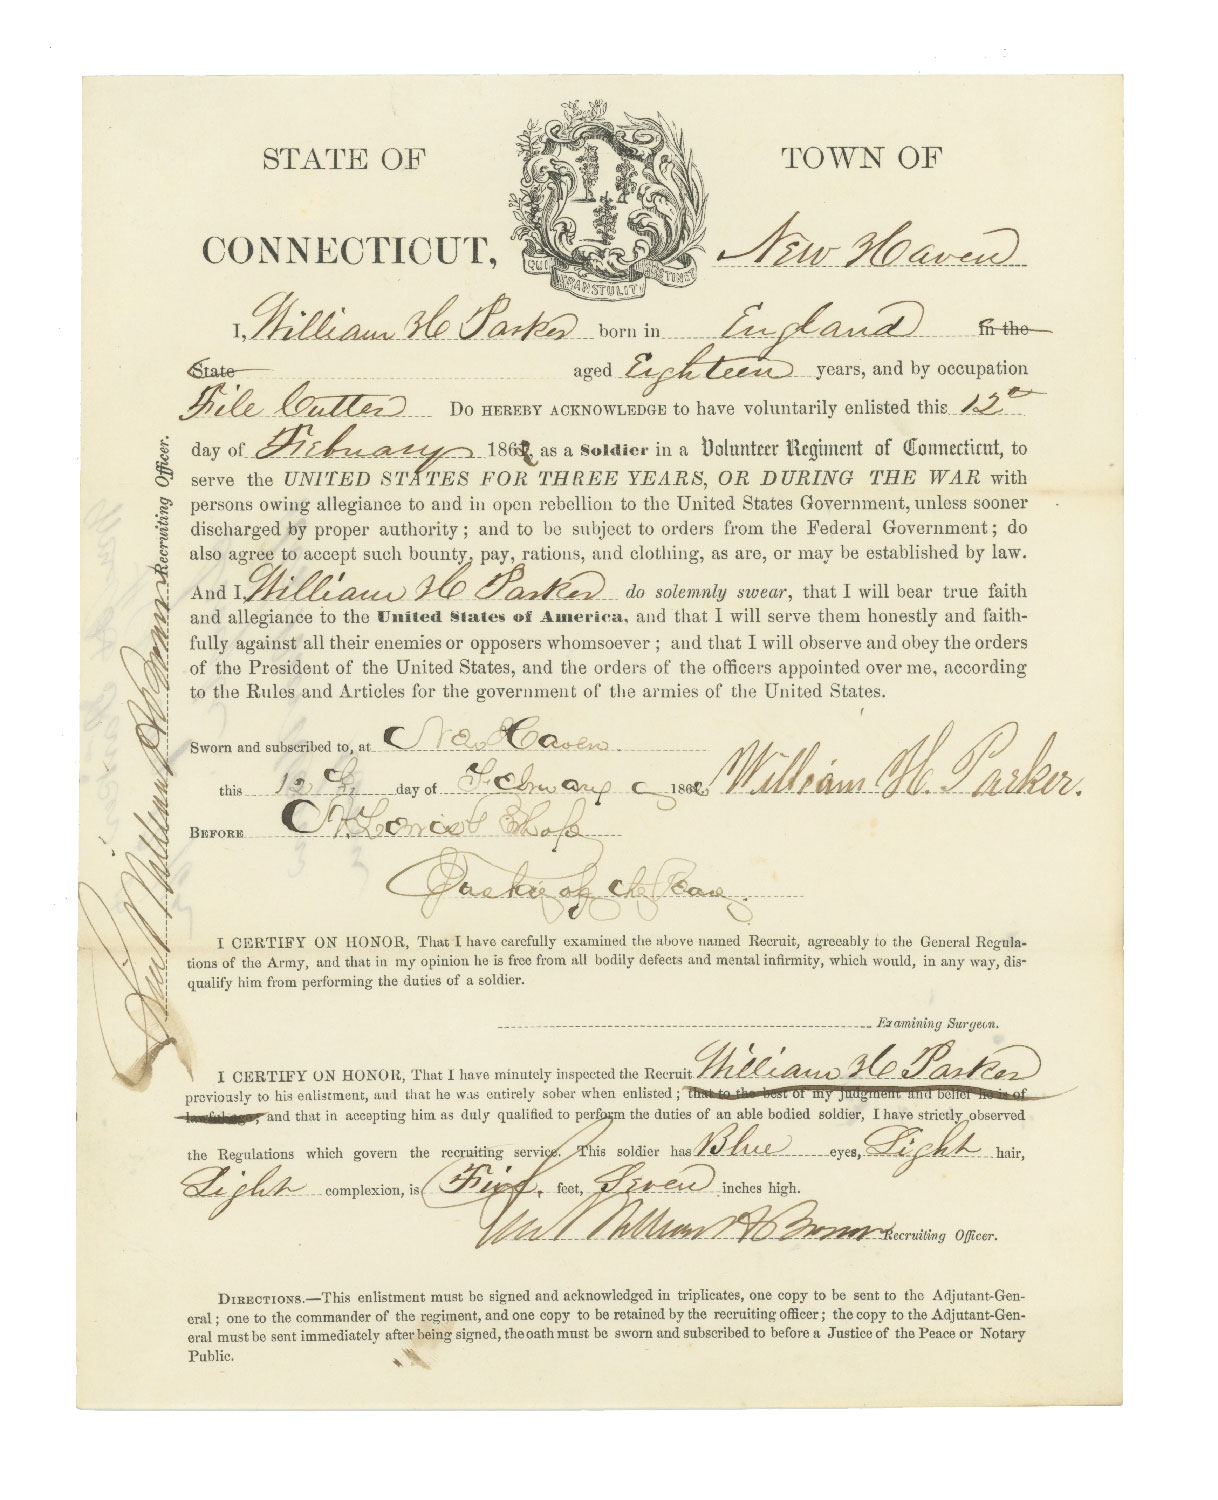 STATE OF
TOWN OF
CONNECTICUT,
New Haven
QUI TRANSTULIT SUSTINET
I, William H Parker born in England in the
State aged Eighteen years, and by occupation
File Cutter Do hereby acknowledge to have voluntarily enlisted this 12th
day of February 1862, as a Soldier in a Volunteer Regiment of Connecticut, to
serve the UNITED STATES FOR THREE YEARS, OR DURING THE WAR with
persons owing allegiance to and in open rebellion to the United States Government, unless sooner
discharged by proper authority; and to be subject to orders from the Federal Government; do
also agree to accept such bounty, pay, rations, and clothing, as are, or may be established by law.
And I, William H Parker do solemnly swear, that I will bear true faith
and allegiance to the United States of America, and that I will serve them honestly and faith-
fully against all their enemies or opposers whomsoever; and that I will observe and obey the orders
of the President of the United States, and the orders of the officers appointed over me, according
to the Rules and Articles for the government of the armies of the United States.
Sworn and subscribed to, at New Haven
this 12th day of February 1862 William H. Parker.
Before
Justice of the Peace
I CERTIFY ON HONOR, That I have carefully examined the above named Recruit, agreeably to the General Regula-
tions of the Army, and that in my opinion he is free from all bodily defects and mental infirmity, which would, in any way, dis-
qualify him from performing the duties of a soldier.
Examining Surgeon.
I CERTIFY ON HONOR, That I have minutely inspected the Recruit William H Parker
previously to his enlistment, and that he was entirely sober when enlisted; that to the best of my judgment and belief he is of
lawful age; and that in accepting him as duly qualified to perform the duties of an able bodied soldier, I have strictly observed
the Regulations which govern the recruiting service. This soldier has Blue eyes, Light hair,
Light complexion, is Five feet, Seven inches high.
Recruiting Officer.
Directions.—This enlistment must be signed and acknowledged in triplicates, one copy to be sent to the Adjutant-Gen-
eral; one to the commander of the regiment, and one copy to be retained by the recruiting officer; the copy to the Adjutant-Gen-
eral must be sent immediately after being signed, the oath must be sworn and subscribed to before a Justice of the Peace or Notary
Public.
Recruiting Officer.